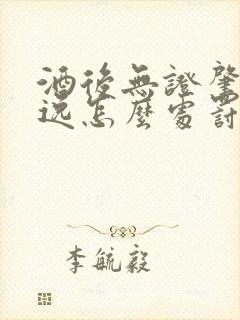 酒後無證肇
逃怎麼處罰
李毓毅